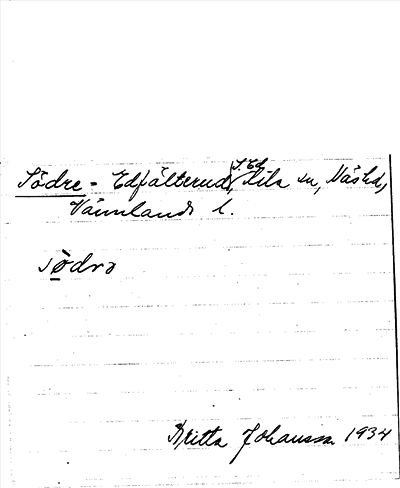 Södre - Edfälterud, S. Ed Kila sn, Näs hd,
Värmlands l.
södrə
Britta Johansson 1934